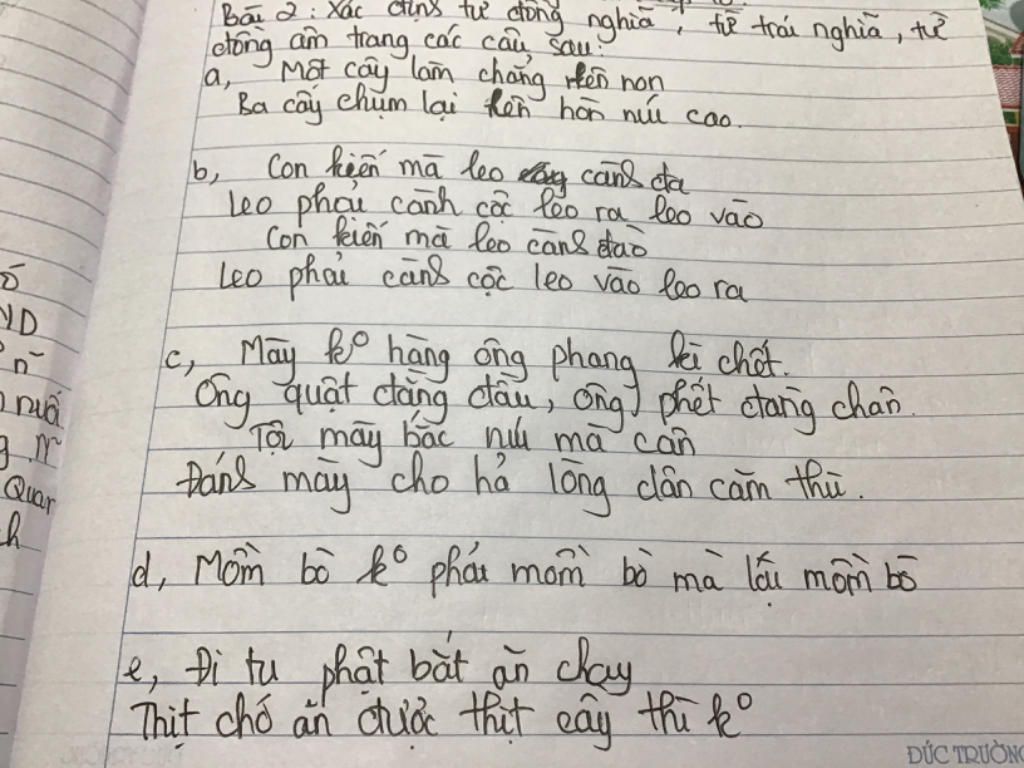 Bài 2: Xác định từ đồng nghĩa, từ trái nghĩa, từ
đồng âm trang các câu sau:
a, Một cây làm chẳng nên non
Ba cây chụm lại nên hòn núi cao.
b, Con kiến mà leo cành đa
Leo phải cành cộc leo ra leo vào
Con kiến mà leo cành đào
Leo phải cành cộc leo vào leo ra
c, Mày kº hàng ông phang kì chết.
Ông quật đằng đầu, ông phết đằng chân.
Tội mày bắc núi mà cân
Đánh mày cho hả lòng dân căm thù.
d, Mồm bò kº phải mồm bò mà lại mồm bò
e, Đi tu phật bắt ăn chay
Thịt chó ăn được thịt cầy thì kº
ố
VD
n
nuố
Quar
h
ĐỨC TRƯỜNG